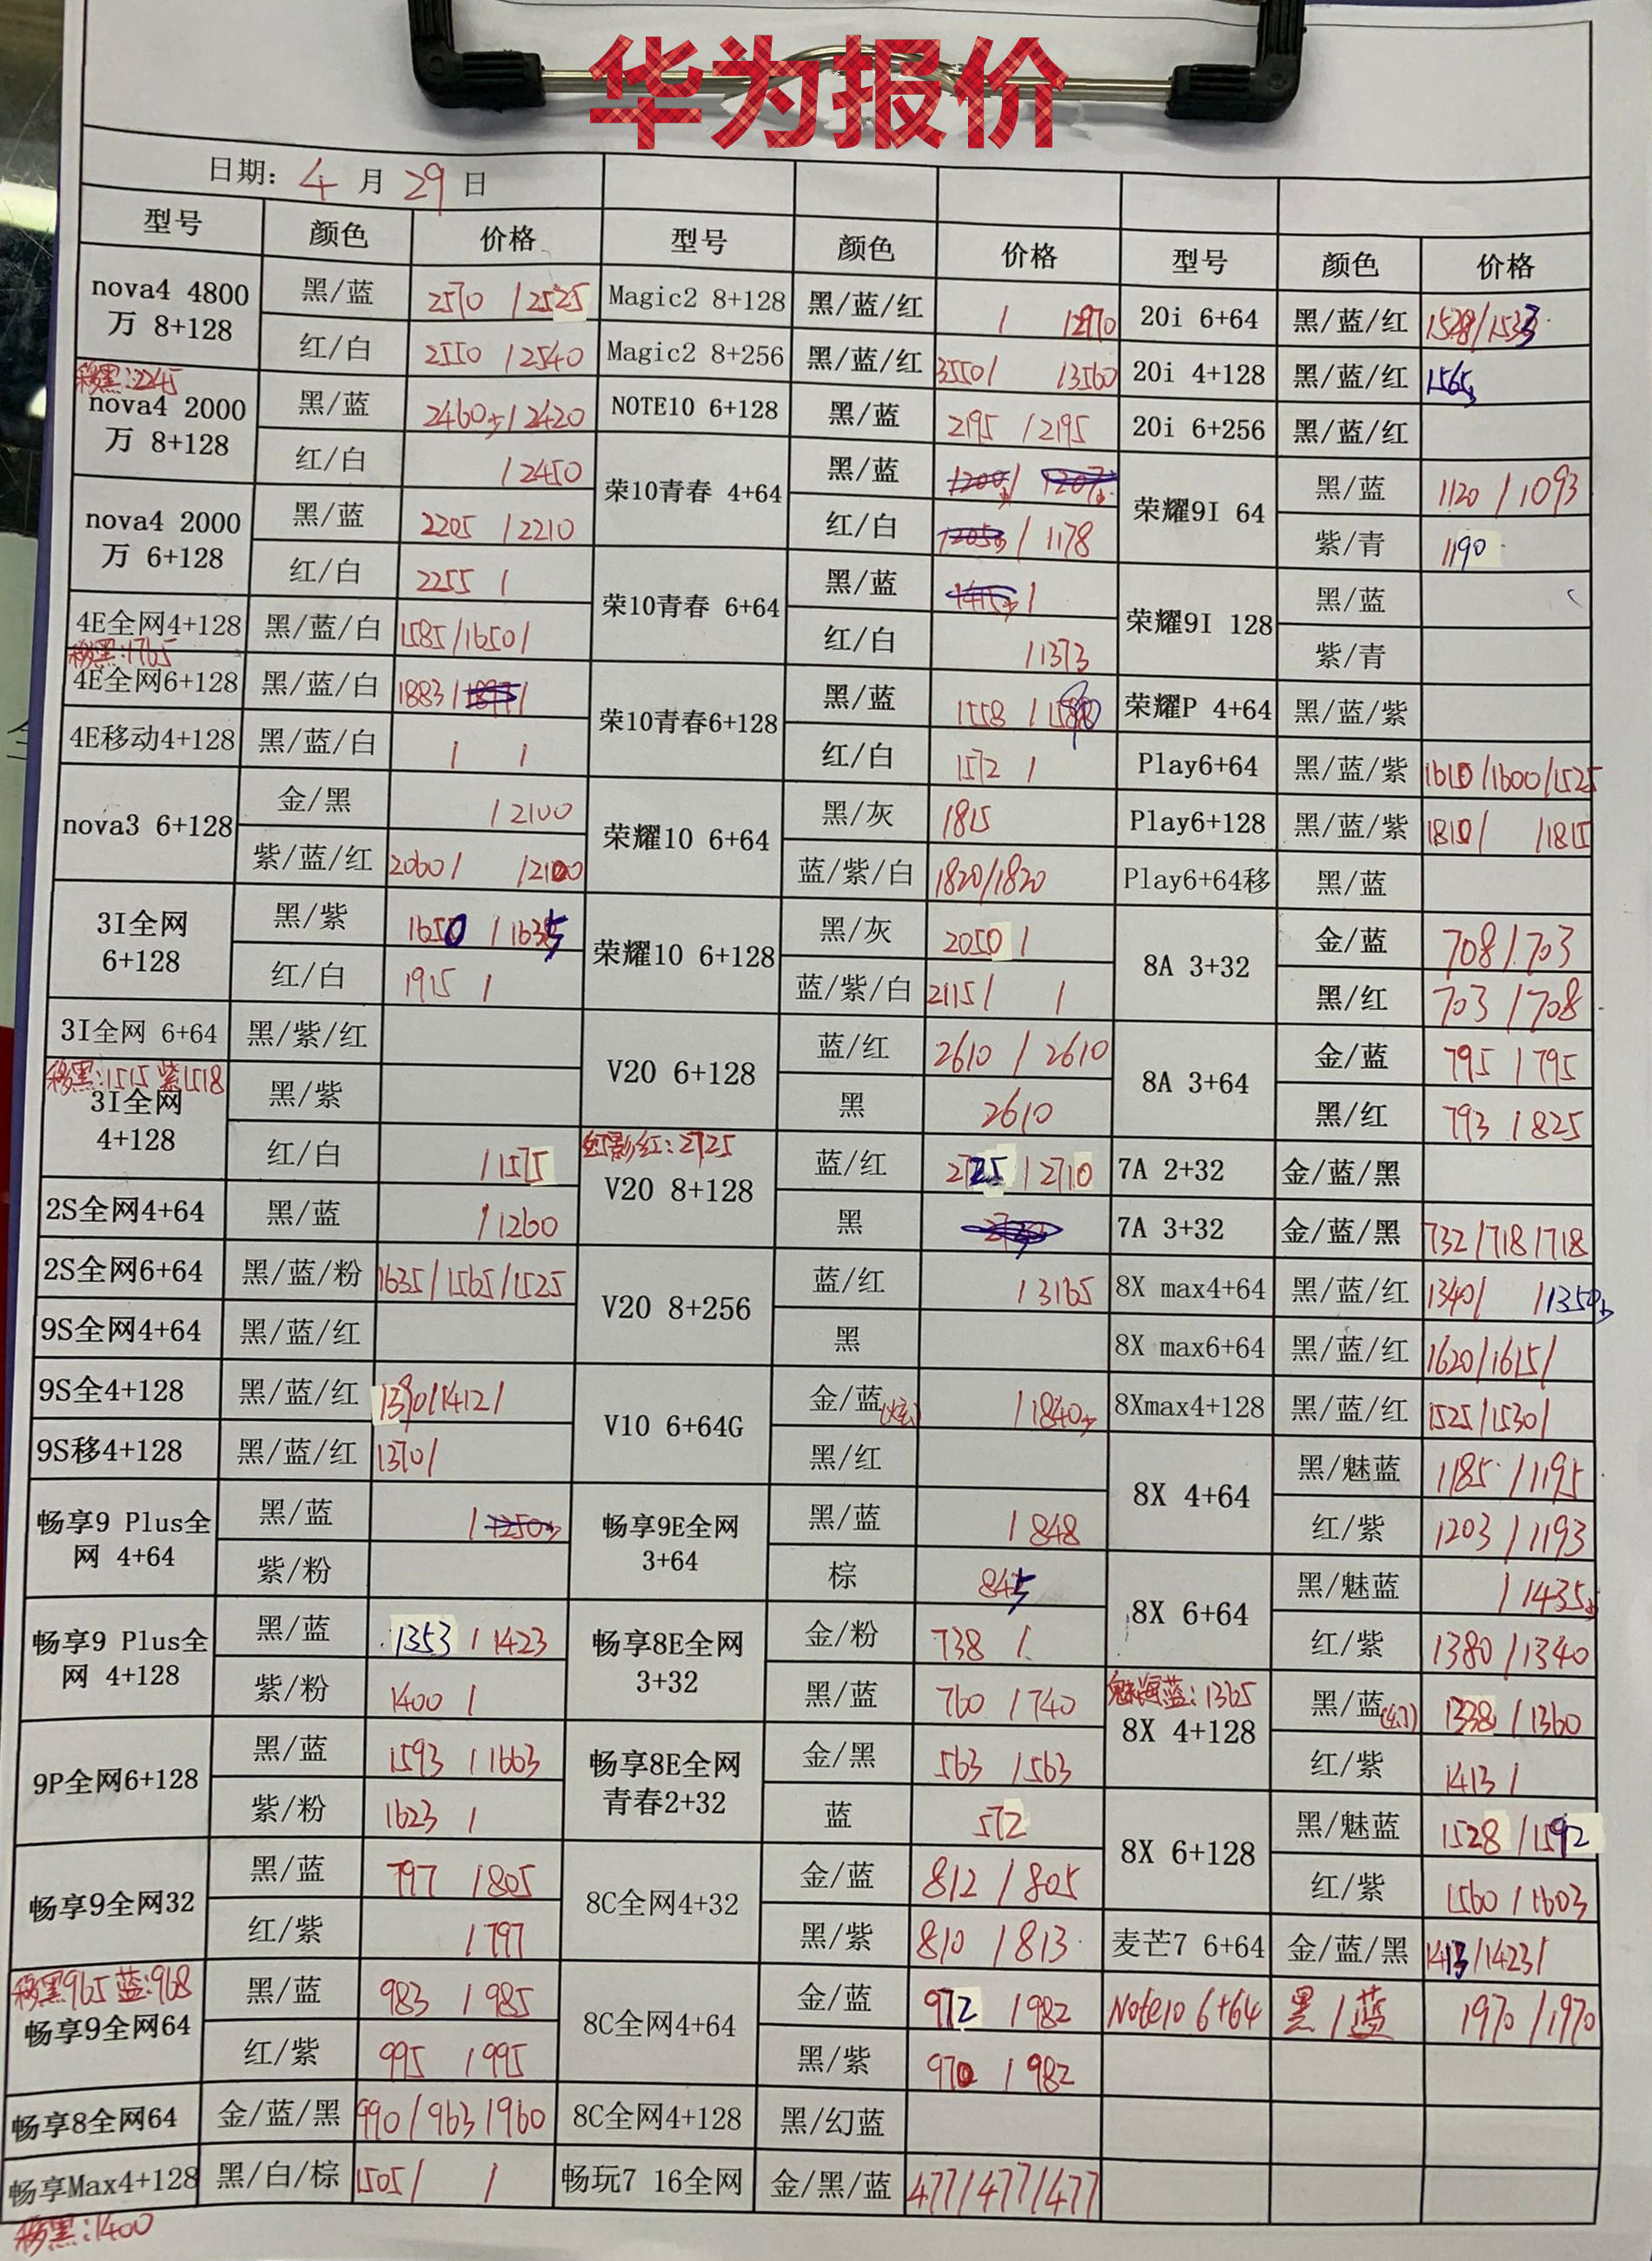 华为报价
日期: 4 月 29 日
型号 颜色 价格 型号 颜色 价格 型号 颜色 价格
nova4 4800万 8+128 黑/蓝 2570 /2525 Magic2 8+128 黑/蓝/红 / /2970 20i 6+64 黑/蓝/红 1528/1533
红/白 2550 /2540 Magic2 8+256 黑/蓝/红 3550/ /3560 20i 4+128 黑/蓝/红 1565
移黑:2245
nova4 2000万 8+128 黑/蓝 2460 /2420 NOTE10 6+128 黑/蓝 2195 /2195 20i 6+256 黑/蓝/红
红/白 /2450 荣10青春 4+64 黑/蓝 / 荣耀9I 64 黑/蓝 1120 /1093
nova4 2000万 6+128 黑/蓝 2205 /2210 红/白 / 1178 紫/青 1190
红/白 2255 / 荣10青春 6+64 黑/蓝 / 荣耀9I 128 黑/蓝
4E全网4+128 黑/蓝/白 1585/1650/ 红/白 /1373 紫/青
移黑:1765
4E全网6+128 黑/蓝/白 1883/ / 荣10青春6+128 黑/蓝 1558 / 荣耀P 4+64 黑/蓝/紫
4E移动4+128 黑/蓝/白 / / 红/白 1572 / Play6+64 黑/蓝/紫 1610/1600/1525
nova3 6+128 金/黑 /2100 荣耀10 6+64 黑/灰 1815 Play6+128 黑/蓝/紫 1810/ /1815
紫/蓝/红 2060/ /2100 蓝/紫/白 1820/1820 Play6+64移 黑/蓝
3I全网 6+128 黑/紫 1650 /1635 荣耀10 6+128 黑/灰 2050 / 8A 3+32 金/蓝 708/703
红/白 1915 / 蓝/紫/白 2115/ / 黑/红 703 /708
3I全网 6+64 黑/紫/红 V20 6+128 蓝/红 2610 / 2610 8A 3+64 金/蓝 795 /795
移黑:1515 紫1518
3I全网 4+128 黑/紫 黑 2610 黑/红 793 /825
幻影红:2725
红/白 /1575 V20 8+128 蓝/红 2725 /2710 7A 2+32 金/蓝/黑
2S全网4+64 黑/蓝 /1260 黑 7A 3+32 金/蓝/黑 732/718/718
2S全网6+64 黑/蓝/粉 1635/1565/1525 V20 8+256 蓝/红 /3165 8X max4+64 黑/蓝/红 1340/ /1350
9S全网4+64 黑/蓝/红 黑 8X max6+64 黑/蓝/红 1620/1615/
9S全4+128 黑/蓝/红 1390/1412/ V10 6+64G 金/蓝(炫) /1840 8Xmax4+128 黑/蓝/红 1525/1530/
9S移4+128 黑/蓝/红 1370/ 黑/红 8X 4+64 黑/魅蓝 1185 /1195
畅享9 Plus全网 4+64 黑/蓝 / 畅享9E全网 3+64 黑/蓝 /848 红/紫 1203 /1193
紫/粉 棕 845 8X 6+64 黑/魅蓝 /1435
畅享9 Plus全网 4+128 黑/蓝 1353 /1423 畅享8E全网 3+32 金/粉 738 / 红/紫 1380 /1340
魅海蓝:1365
紫/粉 1400 / 黑/蓝 760 /740 8X 4+128 黑/蓝(幻) 1338 /1360
9P全网6+128 黑/蓝 1593 /1663 畅享8E全网 青春2+32 金/黑 563 /563 红/紫 1413 /
紫/粉 1623 / 蓝 572 8X 6+128 黑/魅蓝 1528 /1592
畅享9全网32 黑/蓝 797 /805 8C全网4+32 金/蓝 812 /805 红/紫 1560 /1603
红/紫 /797 黑/紫 810 /813 麦芒7 6+64 金/蓝/黑 1413/1423/
移黑965 蓝:968
畅享9全网64 黑/蓝 983 /985 8C全网4+64 金/蓝 972 /982 Note10 6+64 黑/蓝 1970 /1970
红/紫 995 /995 黑/紫 970 /982
畅享8全网64 金/蓝/黑 990/963/960 8C全网4+128 黑/幻蓝
畅享Max4+128 黑/白/棕 1505/ / 畅玩7 16全网 金/黑/蓝 477/477/477
移黑:1400